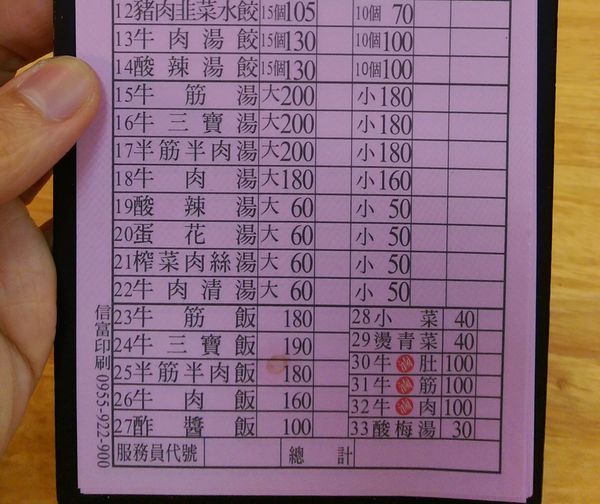 12豬肉韭菜水餃 15個105 10個 70
13牛肉湯餃 15個130 10個100
14酸辣湯餃 15個130 10個100
15牛筋湯 大200 小180
16牛三寶湯 大200 小180
17半筋半肉湯 大200 小180
18牛肉湯 大180 小160
19酸辣湯 大 60 小 50
20蛋花湯 大 60 小 50
21榨菜肉絲湯 大 60 小 50
22牛肉清湯 大 60 小 50
23牛筋飯 180
24牛三寶飯 190
25半筋半肉飯 180
26牛肉飯 160
27酢醬飯 100
28小菜 40
29燙青菜 40
30牛肚 100
31牛筋 100
32牛肉 100
33酸梅湯 30
服務員代號 總計
信富印刷 0955-922-900